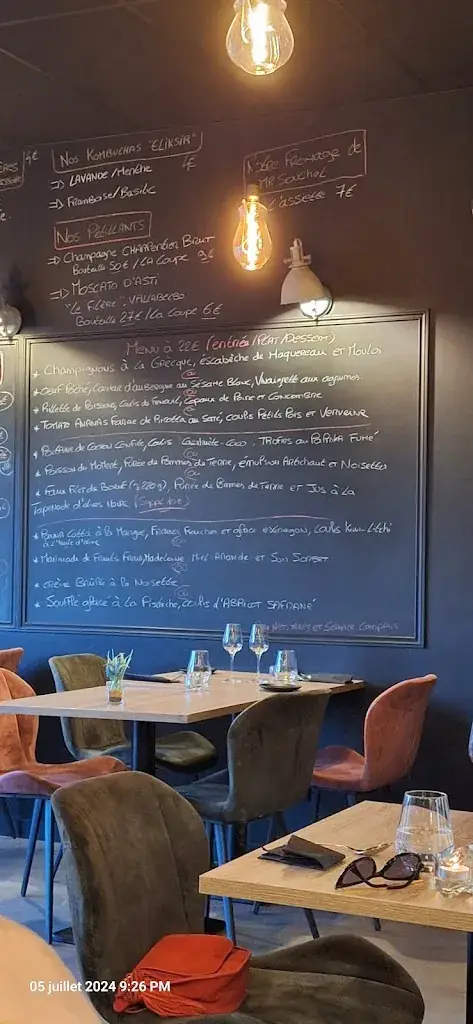 4€
Nos Kombuchas "ELIKSIR"
=> LAVANDE/Menthe 4€
=> Framboise/Basilic
Notre Fromage de
Mr Souchal
L'assiette 7€
Nos Pétillants
=> Champagne CHARPENTIER BRUT
Bouteille 50€ / LA Coupe 9€
=> MOSCATO D'ASTI
"Le Filère" VALLABELBO
Bouteille 27€ / La Coupe 6€
Menu à 28€ (entrée/PLAT/Dessert)
* Champignons à LA Grecque, escabèche de Maquereau et Moules
ou
* Oeuf Poché, Caviar d'aubergine au Sésame Blanc, Vinaigrette aux agrumes
ou
* Rillette de Poissons, Coulis de Fenouil, Copeaux de Poire et Concombre
ou
* Tomate Ananas Farcie de Ricotta au Saté, coulis Petits Pois et Verveine
Confite, Coulis Cacahuète-Coco, Trofies au Paprika Fumé
ou
* Poisson du Moment, Purée de Pommes de Terre, émulsion Artichaut et Noisettes
ou
* Faux Filet de Boeuf, Purée de Pommes de Terre et Jus à La
Tapenade d'olives Noire
* Panna Cotta à la Mangue, Fraises Fraîches et glace estragon, coulis Kiwi-Litchi
ou
* Marinade de Fruits Frais, Madeleine Miel Amande et Son Sorbet
ou
* Crème Brûlée à la Noisette
ou
* Soufflé glacé à La Pistache, coulis d'ABRICOT SAFRANÉ
Prix Net, Taxes et Service Compris
05 juillet 2024 9:26 PM